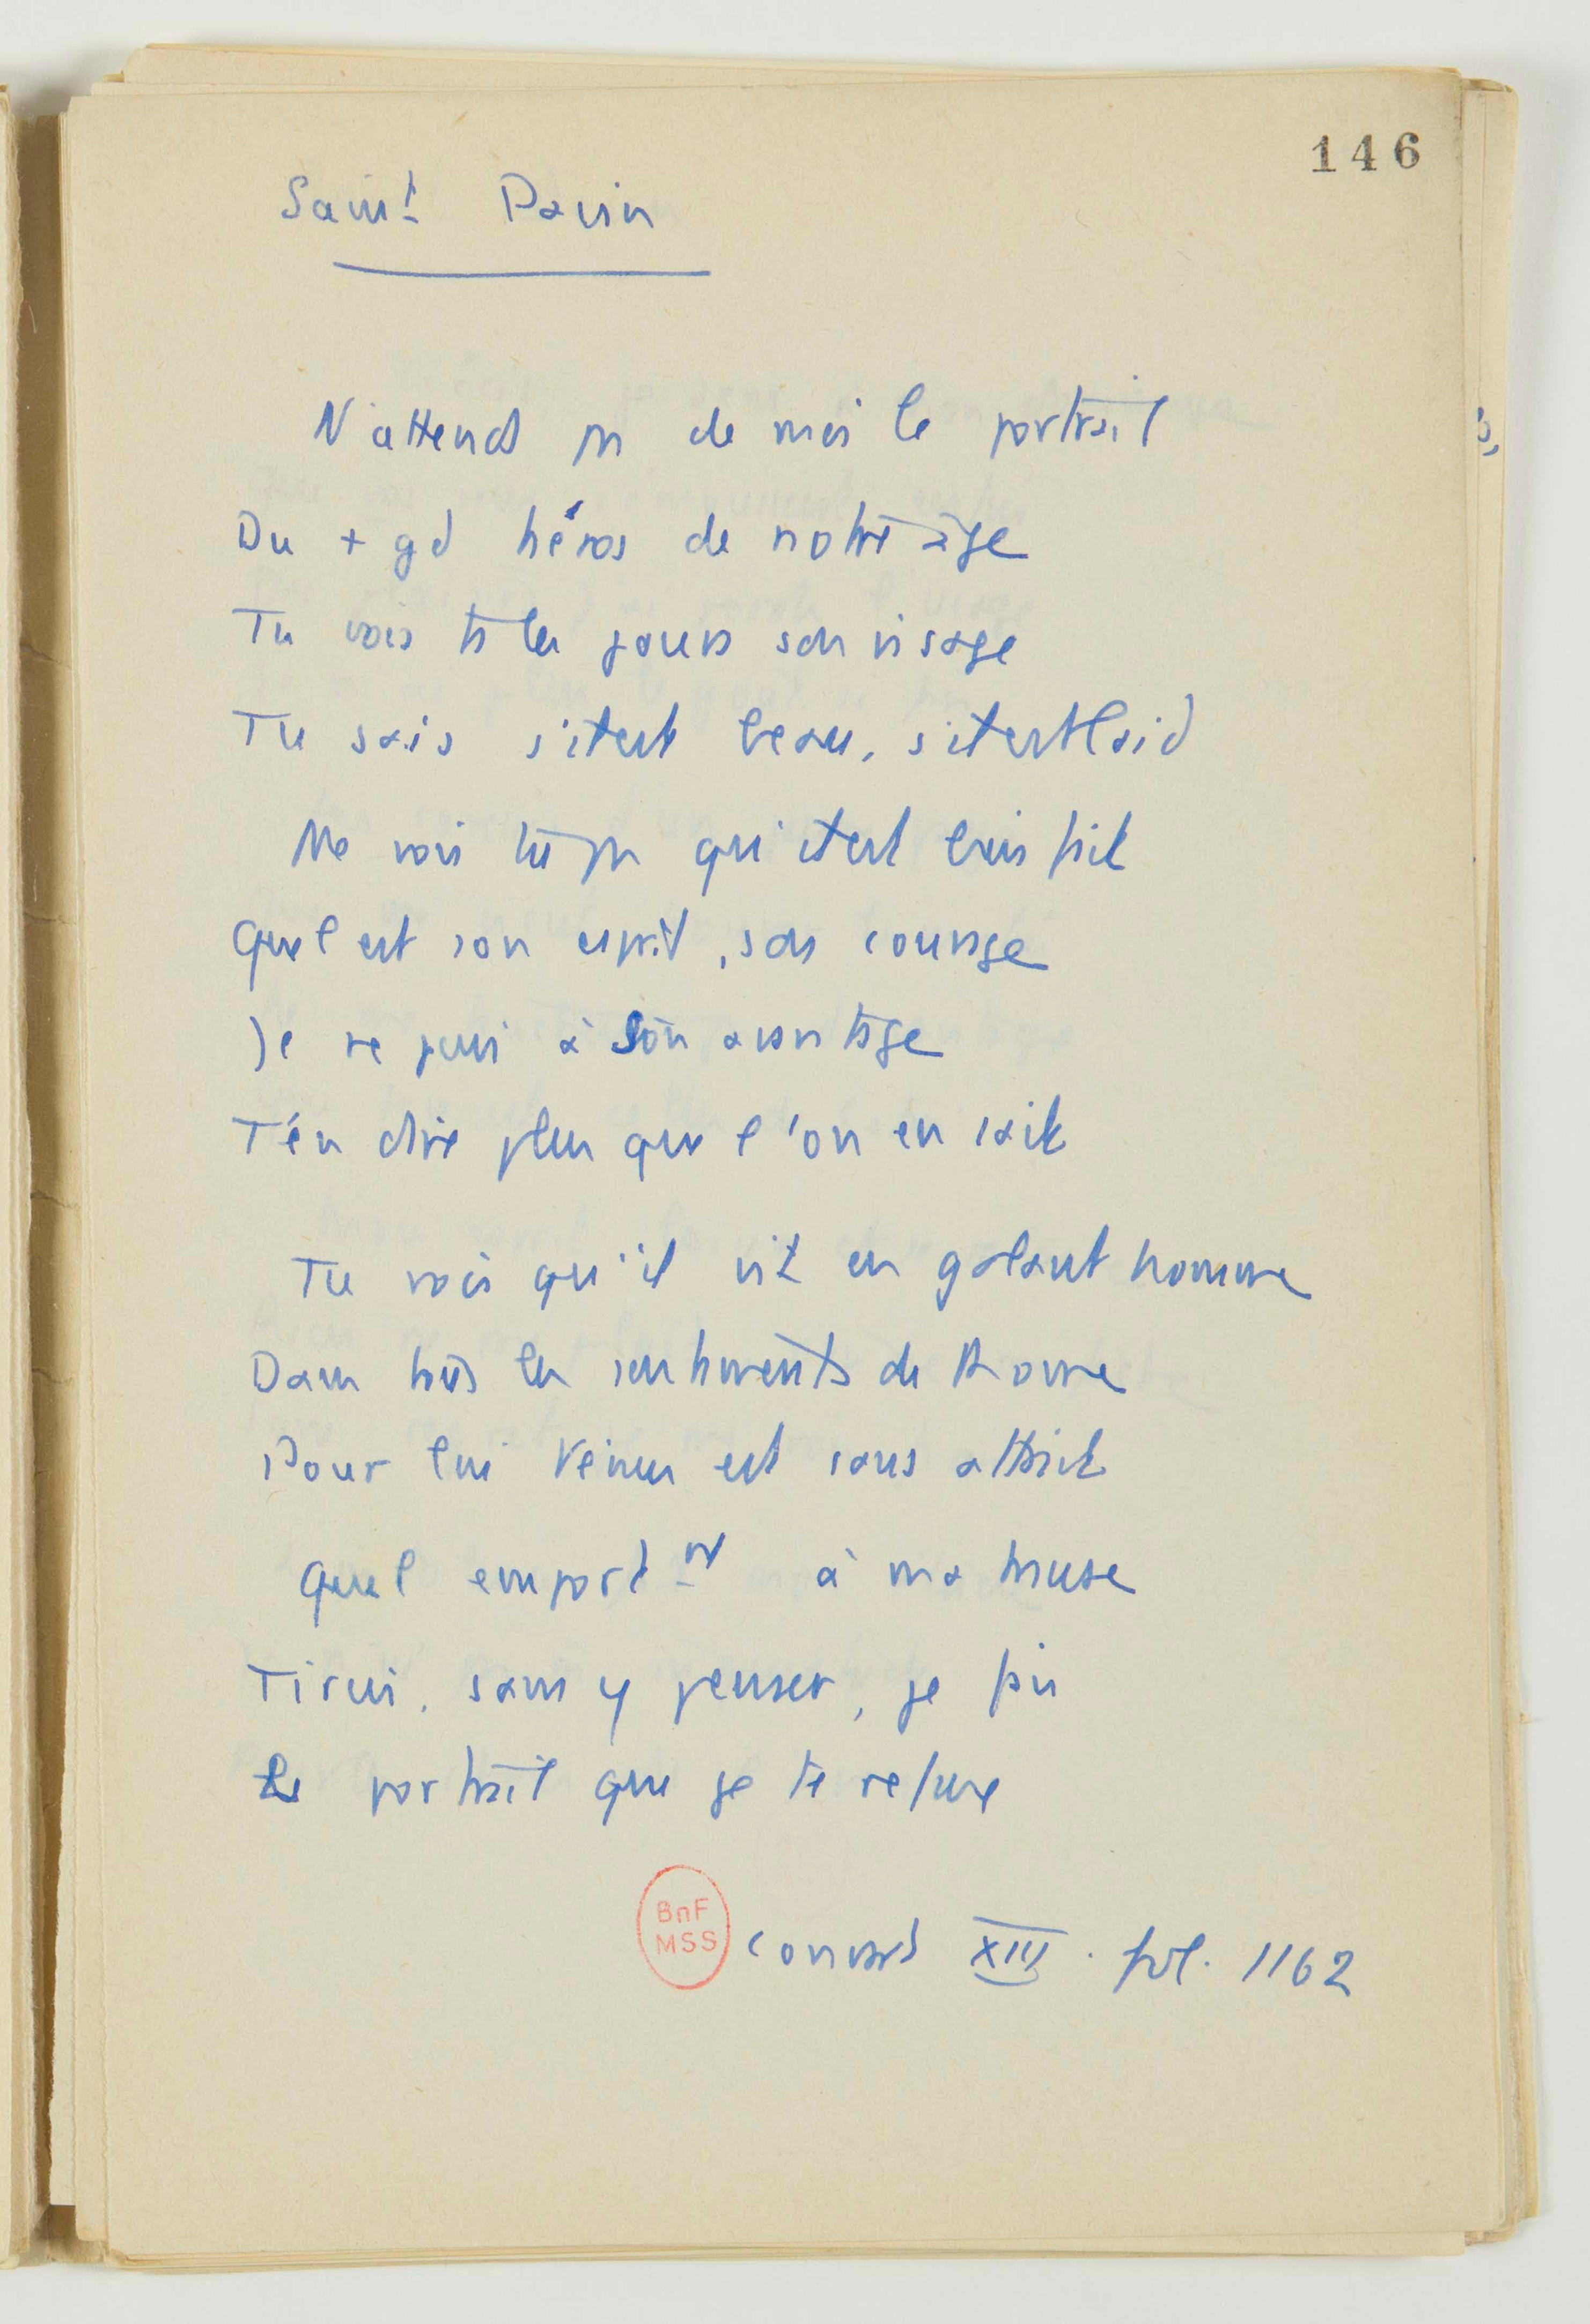 146
Saint Pavin
N'attends pas de moi le portrait
Du + gd héros de notre âge
Tu vois ts les jours son visage
Tu sais s'il est beau, s'il est laid
Ne vois tu pas qu'il est bien fait
Quel est son esprit, son courage
Je ne puis à son avantage
T'en dire plus que l'on en sait
Tu vois qu'il vit en galant homme
Dans tous les sentiments de Rome
Pour lui Vénus est sans attrait
Quel emport-nt à ma muse
Tircis, sans y penser, je fais
Le portrait que je te refuse
BnF
MSS
Conrard XIII. fol. 1162